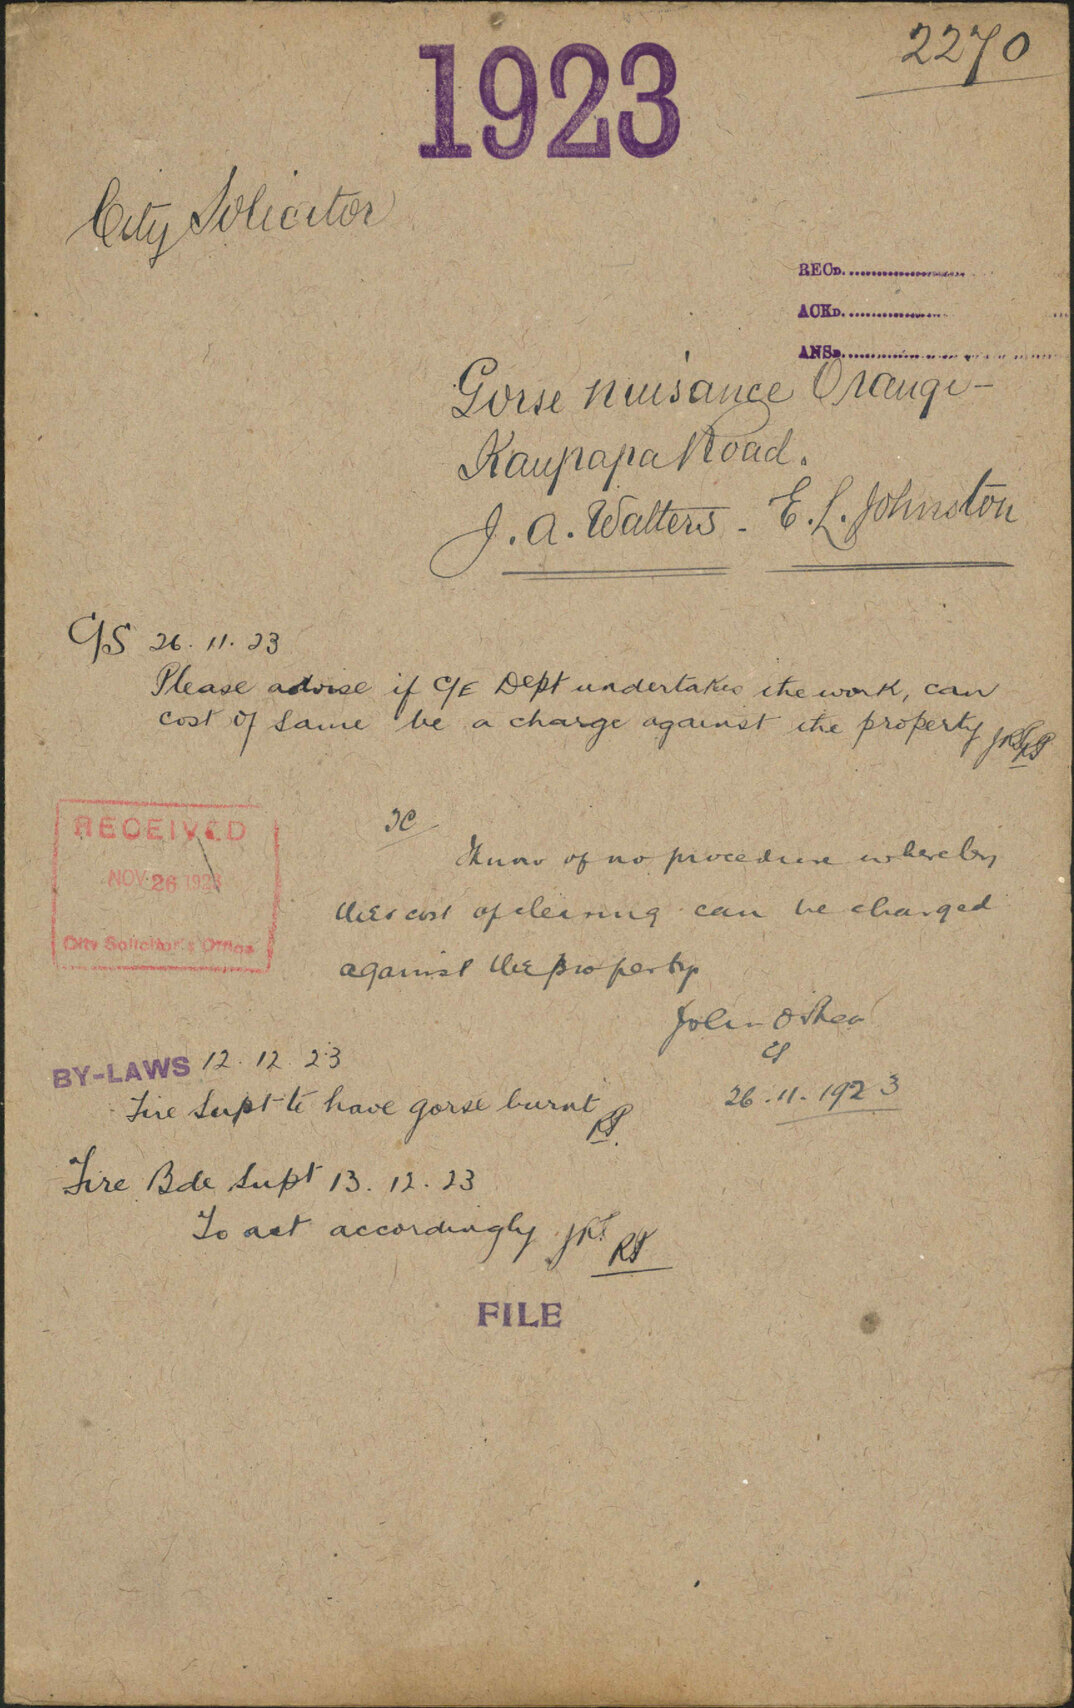 2270
1923
City Solicitor
RECD.
ACKD.
ANSD.
Gorse nuisance Orangi-
Kaupapa Road.
J. A. Walters - E. L. Johnston
C/S 26. 11. 23
Please advise if C/E Dept undertakes the work, can
cost of same be a charge against the property
RECEIVED
NOV 26 1923
City Solicitor's Office
TC
I know of no procedure whereby
the cost of clearing can be charged
against the property
John O'Shea
CS
26.11.1923
BY-LAWS 12. 12 23
Fire Supt to have gorse burnt
Fire Bde Supt 13. 12. 23
To act accordingly
FILE